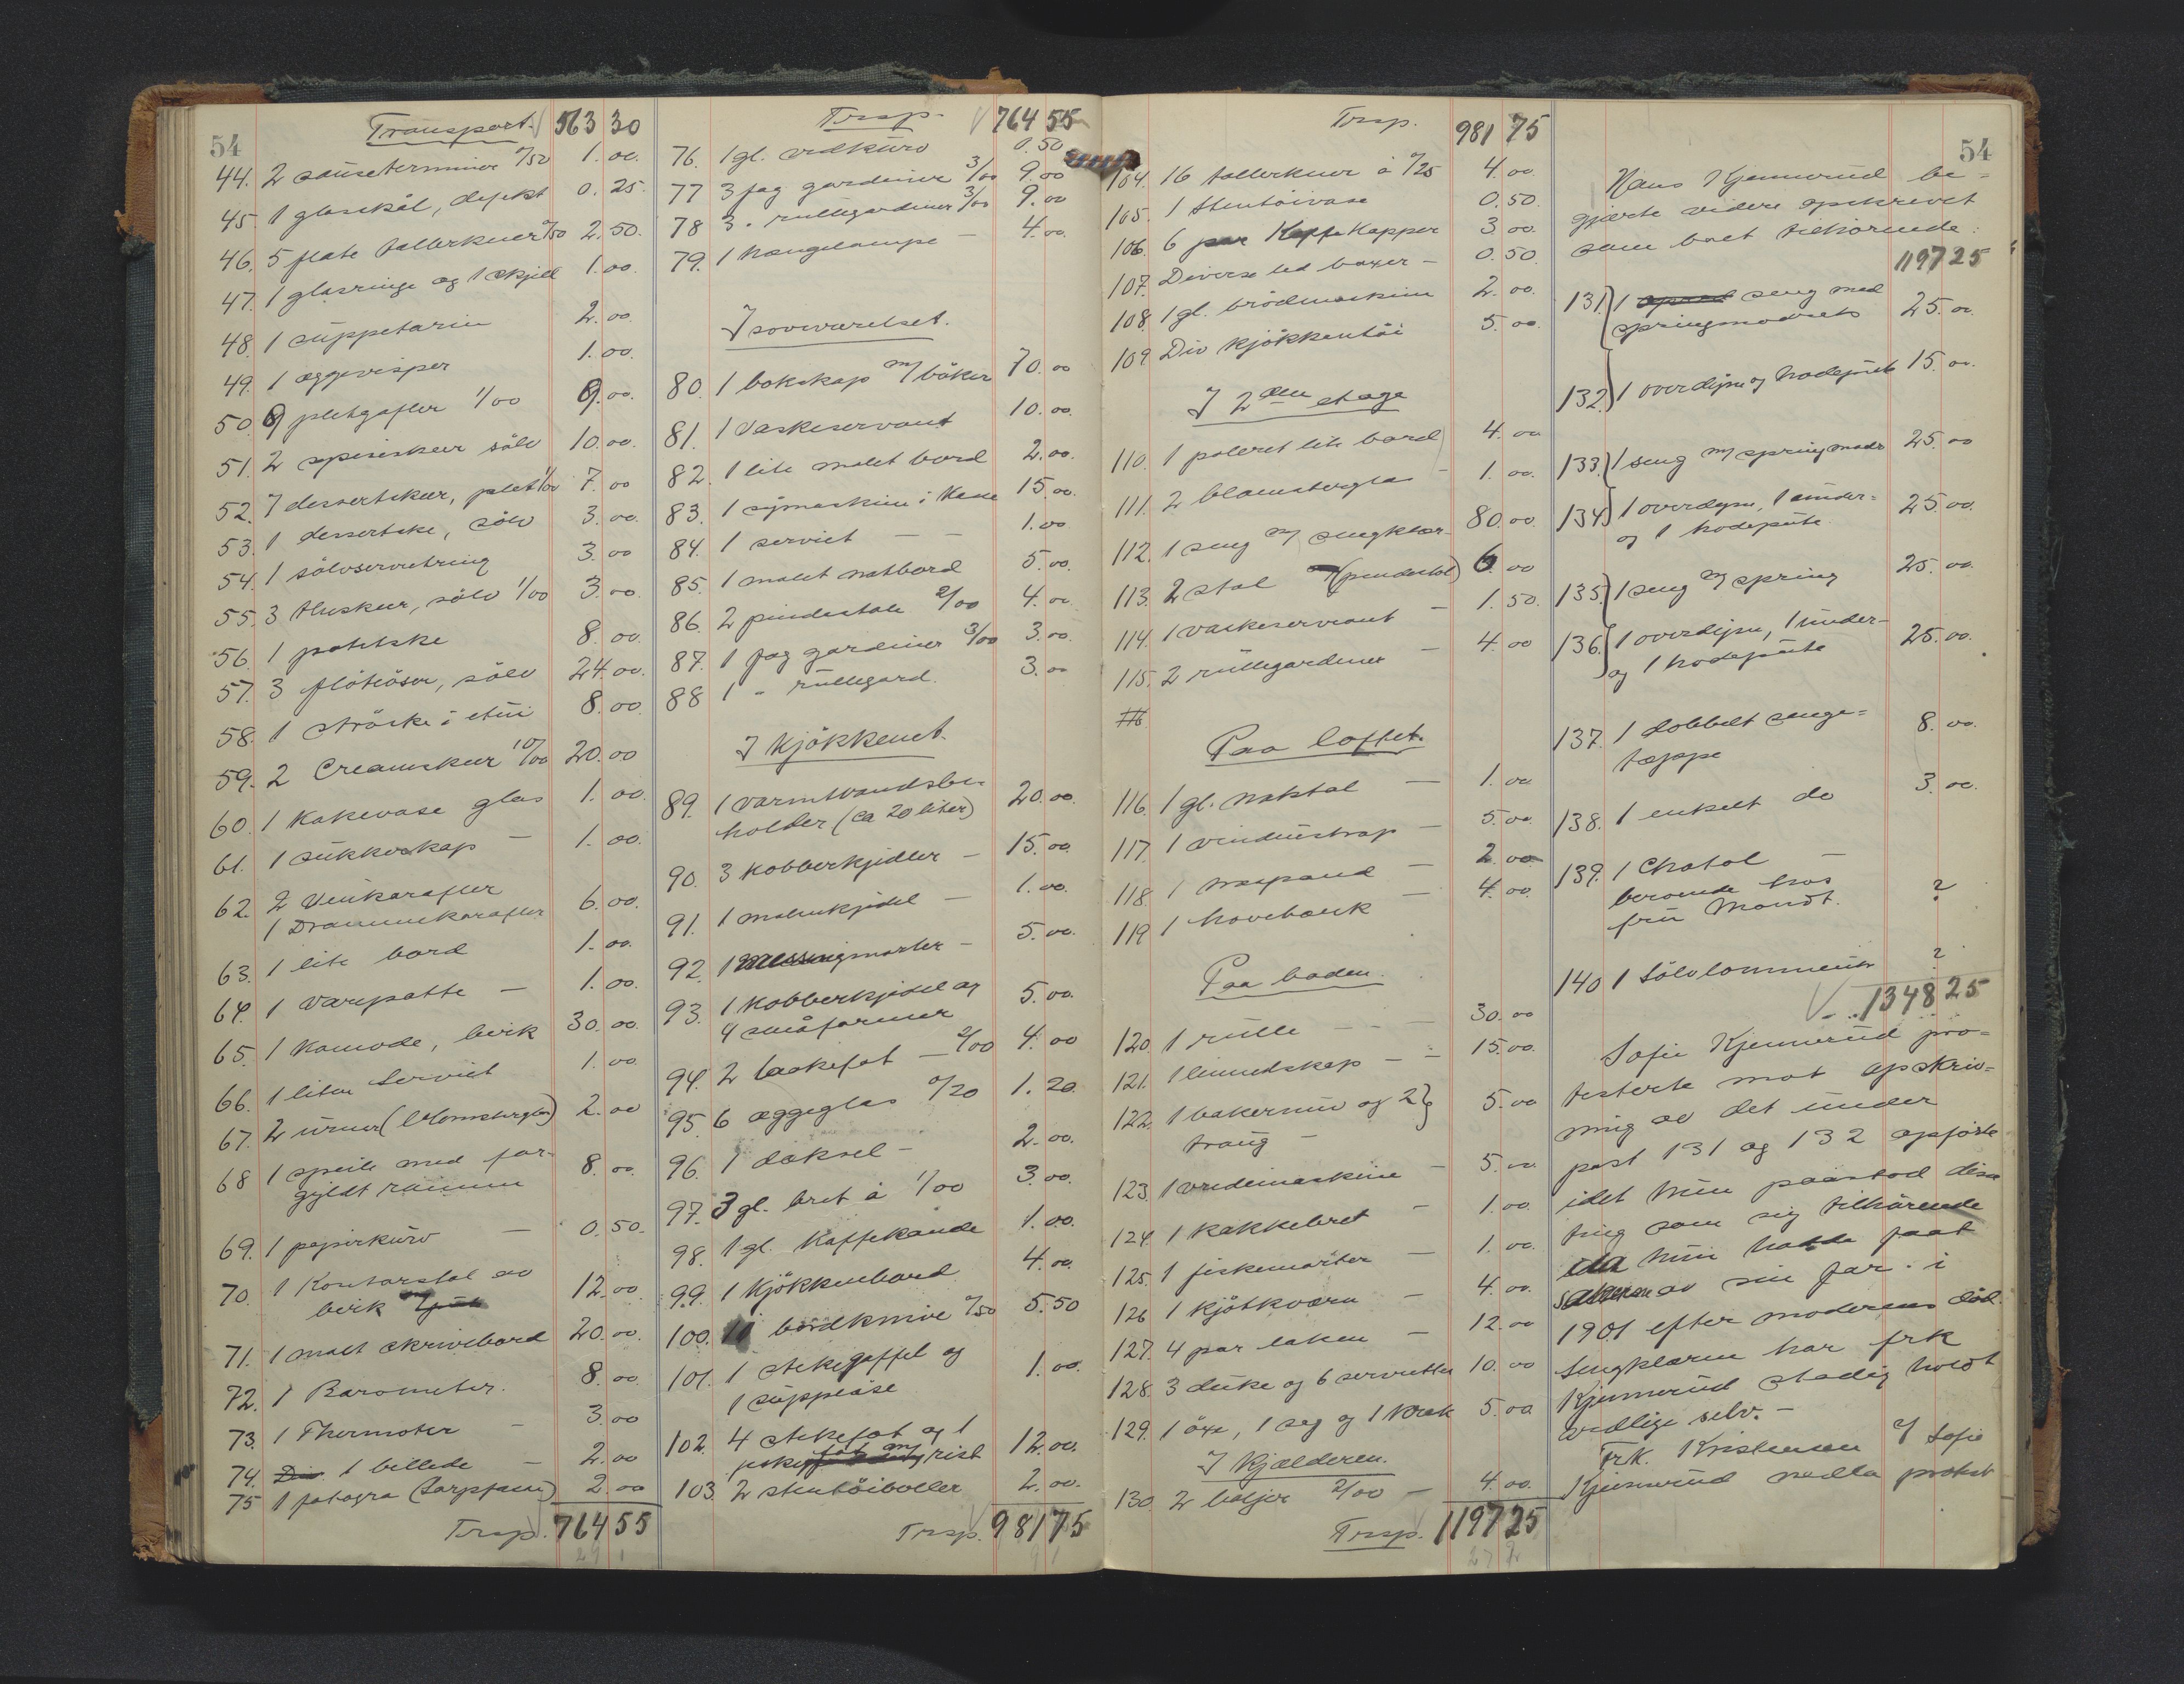 54
Transport. 563 30
44. 2 sauseterriner 0/50 1.00.
45. 1 glasskål, defekt 0.25.
46. 5 flate tallerkener 0/50 2.50.
47. 1 glasringe og 1 skjell 1.00
48. 1 suppeterin 2.00
49. 1 eggevisper 1.00.
50. 9 pletgafler 1/00 9.00.
51. 2 spiseskeer sölv 10.00.
52. 7 dessertskeer, plet 1/00 7.00
53. 1 dessertske, sölv 3.00.
54. 1 sölvserviettring 3.00
55. 3 theskeer, sölv 1/00 3.00.
56. 1 potetske 8.00.
57. 3 flötöser, sölv 24.00.
58. 1 ströske i etui 8.00
59. 2 Creamskeer 10/00 20.00
60. 1 Kakevase glas 1.00.
61. 1 sukkerskap — 1.00.
62. 2 Vinkarafler
1 Drammekarafler 6.00.
63. 1 lite bord 1.00
64. 1 varepotte — 1.00.
65. 1 komode, birk 30.00.
66. 1 liten Serviet 1.00
67. 2 urner (Blomsterglas) 2.00
68 1 speile med for-
gyldt ramme 8.00
69. 1 papirkurv — 0.50.
70. 1 Kontorstol av
birk 12.00
71. 1 malt skrivebord 20.00.
72. 1 Barometer. 8.00
73. 1 Thermoter — 3.00
74. 1 billede — 2.00
75 1 fotogra (Torpsfam) 2.00
Trsp. 764 55
Trsp. 764 55
76. 1 gl. vedkurv 0.50
77 3 fag gardiner 3/00 9.00
78 3 " rullegardiner 3/00 9.00
79. 1 hængelampe — 4.00.
I soveværelset.
80. 1 bokskap m/ böker 70.00
81. 1 Vaskeservant 10.00.
82. 1 lite malet bord 2.00.
83. 1 symaskine i Kasse 15.00.
84. 1 serviet — — 1.00
85. 1 malet natbord 5.00.
86. 2 pindestole 2/00 4.00
87. 1 fag gardiner 3/00 3.00.
88 1 " rullegard. 3.00
I Kjökkenet.
89. 1 varmtvandsbe-
holder (ca 20 liter) 20.00.
90. 3 Kobberkjedler — 15.00
91. 1 malmkjedel — 1.00.
92. 1 messingmorter — 5.00.
93. 1 Kobberkjedel og
4 småformer 5.00.
94. 2 baksefat — 2/00 4.00
95. 6 æggeglas 0/20 1.20.
96. 1 dörsel — 2.00.
97. 3 gl. bret à 1/00 3.00.
98. 1 gl. Kaffekande 1.00.
99. 1 Kjökkenbord 4.00.
100. 11 bordknive 0/50 5.50
101. 1 stekegaffel og
1 suppeöse 1.00.
102. 4 stekefat og 1
m/ rist 12.00.
103. 2 stentöiboller 2.00.
Trsp. 981 75
54
Trsp. 981 75
104. 16 tallerkner à 0/25 4.00.
105. 1 Stentöivase 0.50.
106. 6 Kopper 3.00
107. Diverse led boxer — 0.50.
108. 1 gl. brödmaskine 2.00.
109. Div kjökkentöi 5.00.
I 2den etage
110. 1 poleret lite bord 4.00
111. 2 blomsterglas — 1.00.
112. 1 seng m/ sengklær 80.00.
113. 2 stol (pindestol) 6.00
114. 1 vaskeservant — 1.50.
115. 2 rullegardiner — 4.00
Paa loftet.
116. 1 gl. natstol — 1.00
117. 1 vindustrap — 5.00
118 1 — 2.00
119 1 hovebænk — 4.00
Paa boden.
120. 1 rulle — — — 30.00
121. 1 linnedskap — — 15.00.
122. 1 baketrau og 2
traug — 5.00
123. 1 vridemaskine — 5.00
124. 1 kakkebret — 1.00
125. 1 fiskemorter — 1.00.
126 1 kjötkværn — 4.00.
127. 4 par laken — 12.00
128. 3 duke og 6 servietter 10.00
129. 1 öxe, 1 sag og 1 krak 5.00
I Kjælderen.
130. 2 baljer 2/00 — 4.00.
Trsp. 1197 25
Hans Kjennerud be-
gjærte videre opskrevet
som boet tilhörende:
1197 25
131. 1 seng med
springmadrats 25.00
132. 1 overdyne og hodepute 15.00.
133. 1 seng m/ springmadr 25.00
134. 1 overdyne, 1 under-
og 1 hodepute 25.00.
135. 1 seng m/ spring 25.00
136. 1 overdyne, 1 under-
og 1 hodepute 25.00.
137. 1 dobbelt senge-
tæppe 8.00.
138. 1 enkelt do 3.00.
139. 1 Chatol —
beroende hos
fru Mandt. ?
140 1 Sölvlommeur ?
1348 25
Sofie Kjennerud pro-
testerte mot opskriv-
ning av det under
post 131 og 132 opförte
idet hun paastod disse
ting som sig tilhörende
hun hadde faat
av sin far i
1901 efter moderens död.
Sengklærne har frk
Kjennerud stadig holdt
vedlige selv. —
Frk. Kristensen f Sofie
Kjennerud nedla protest